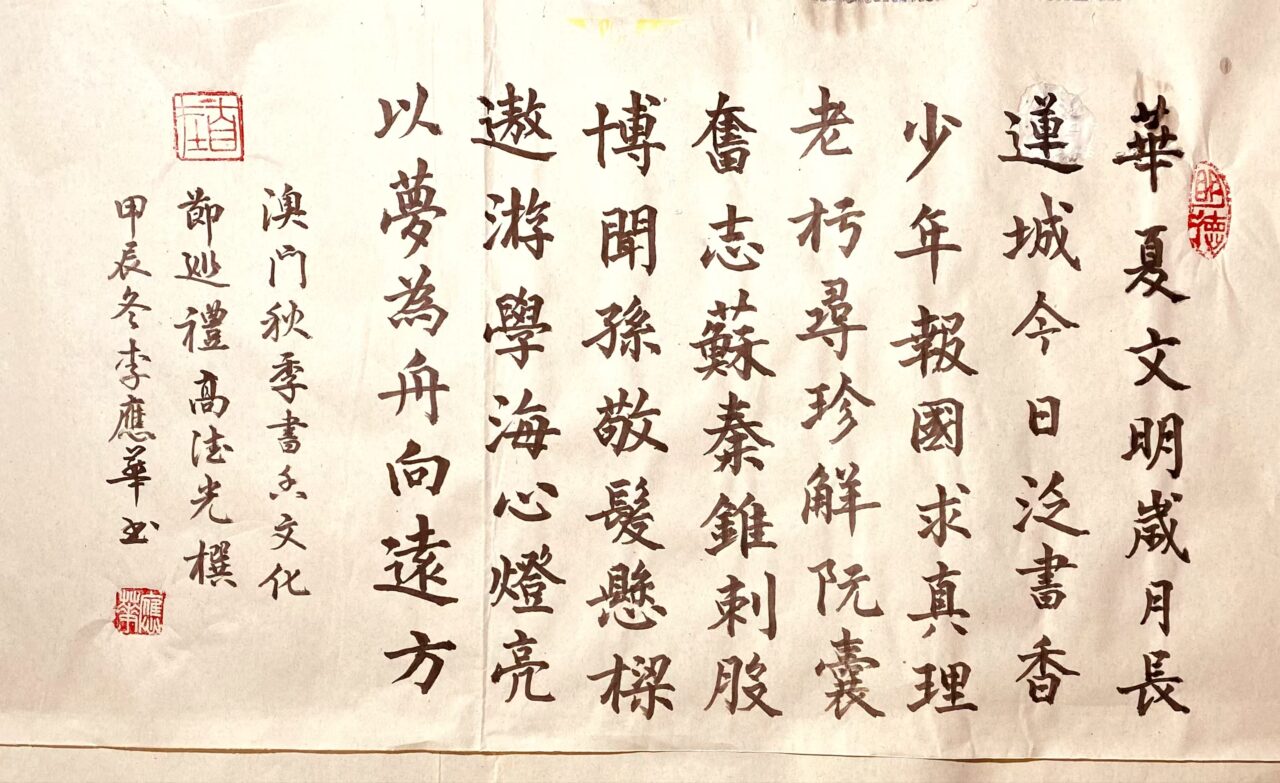 明德
華夏文明歲月長
蓮城今日泛書香
少年報國求真理
老朽尋珍解阮囊
奮志蘇秦錐刺股
博聞孫敬髮懸樑
遨游學海心燈亮
以夢為舟向遠方
澳門秋季書香文化
節巡禮高德光撰
甲辰冬李應華书
應華